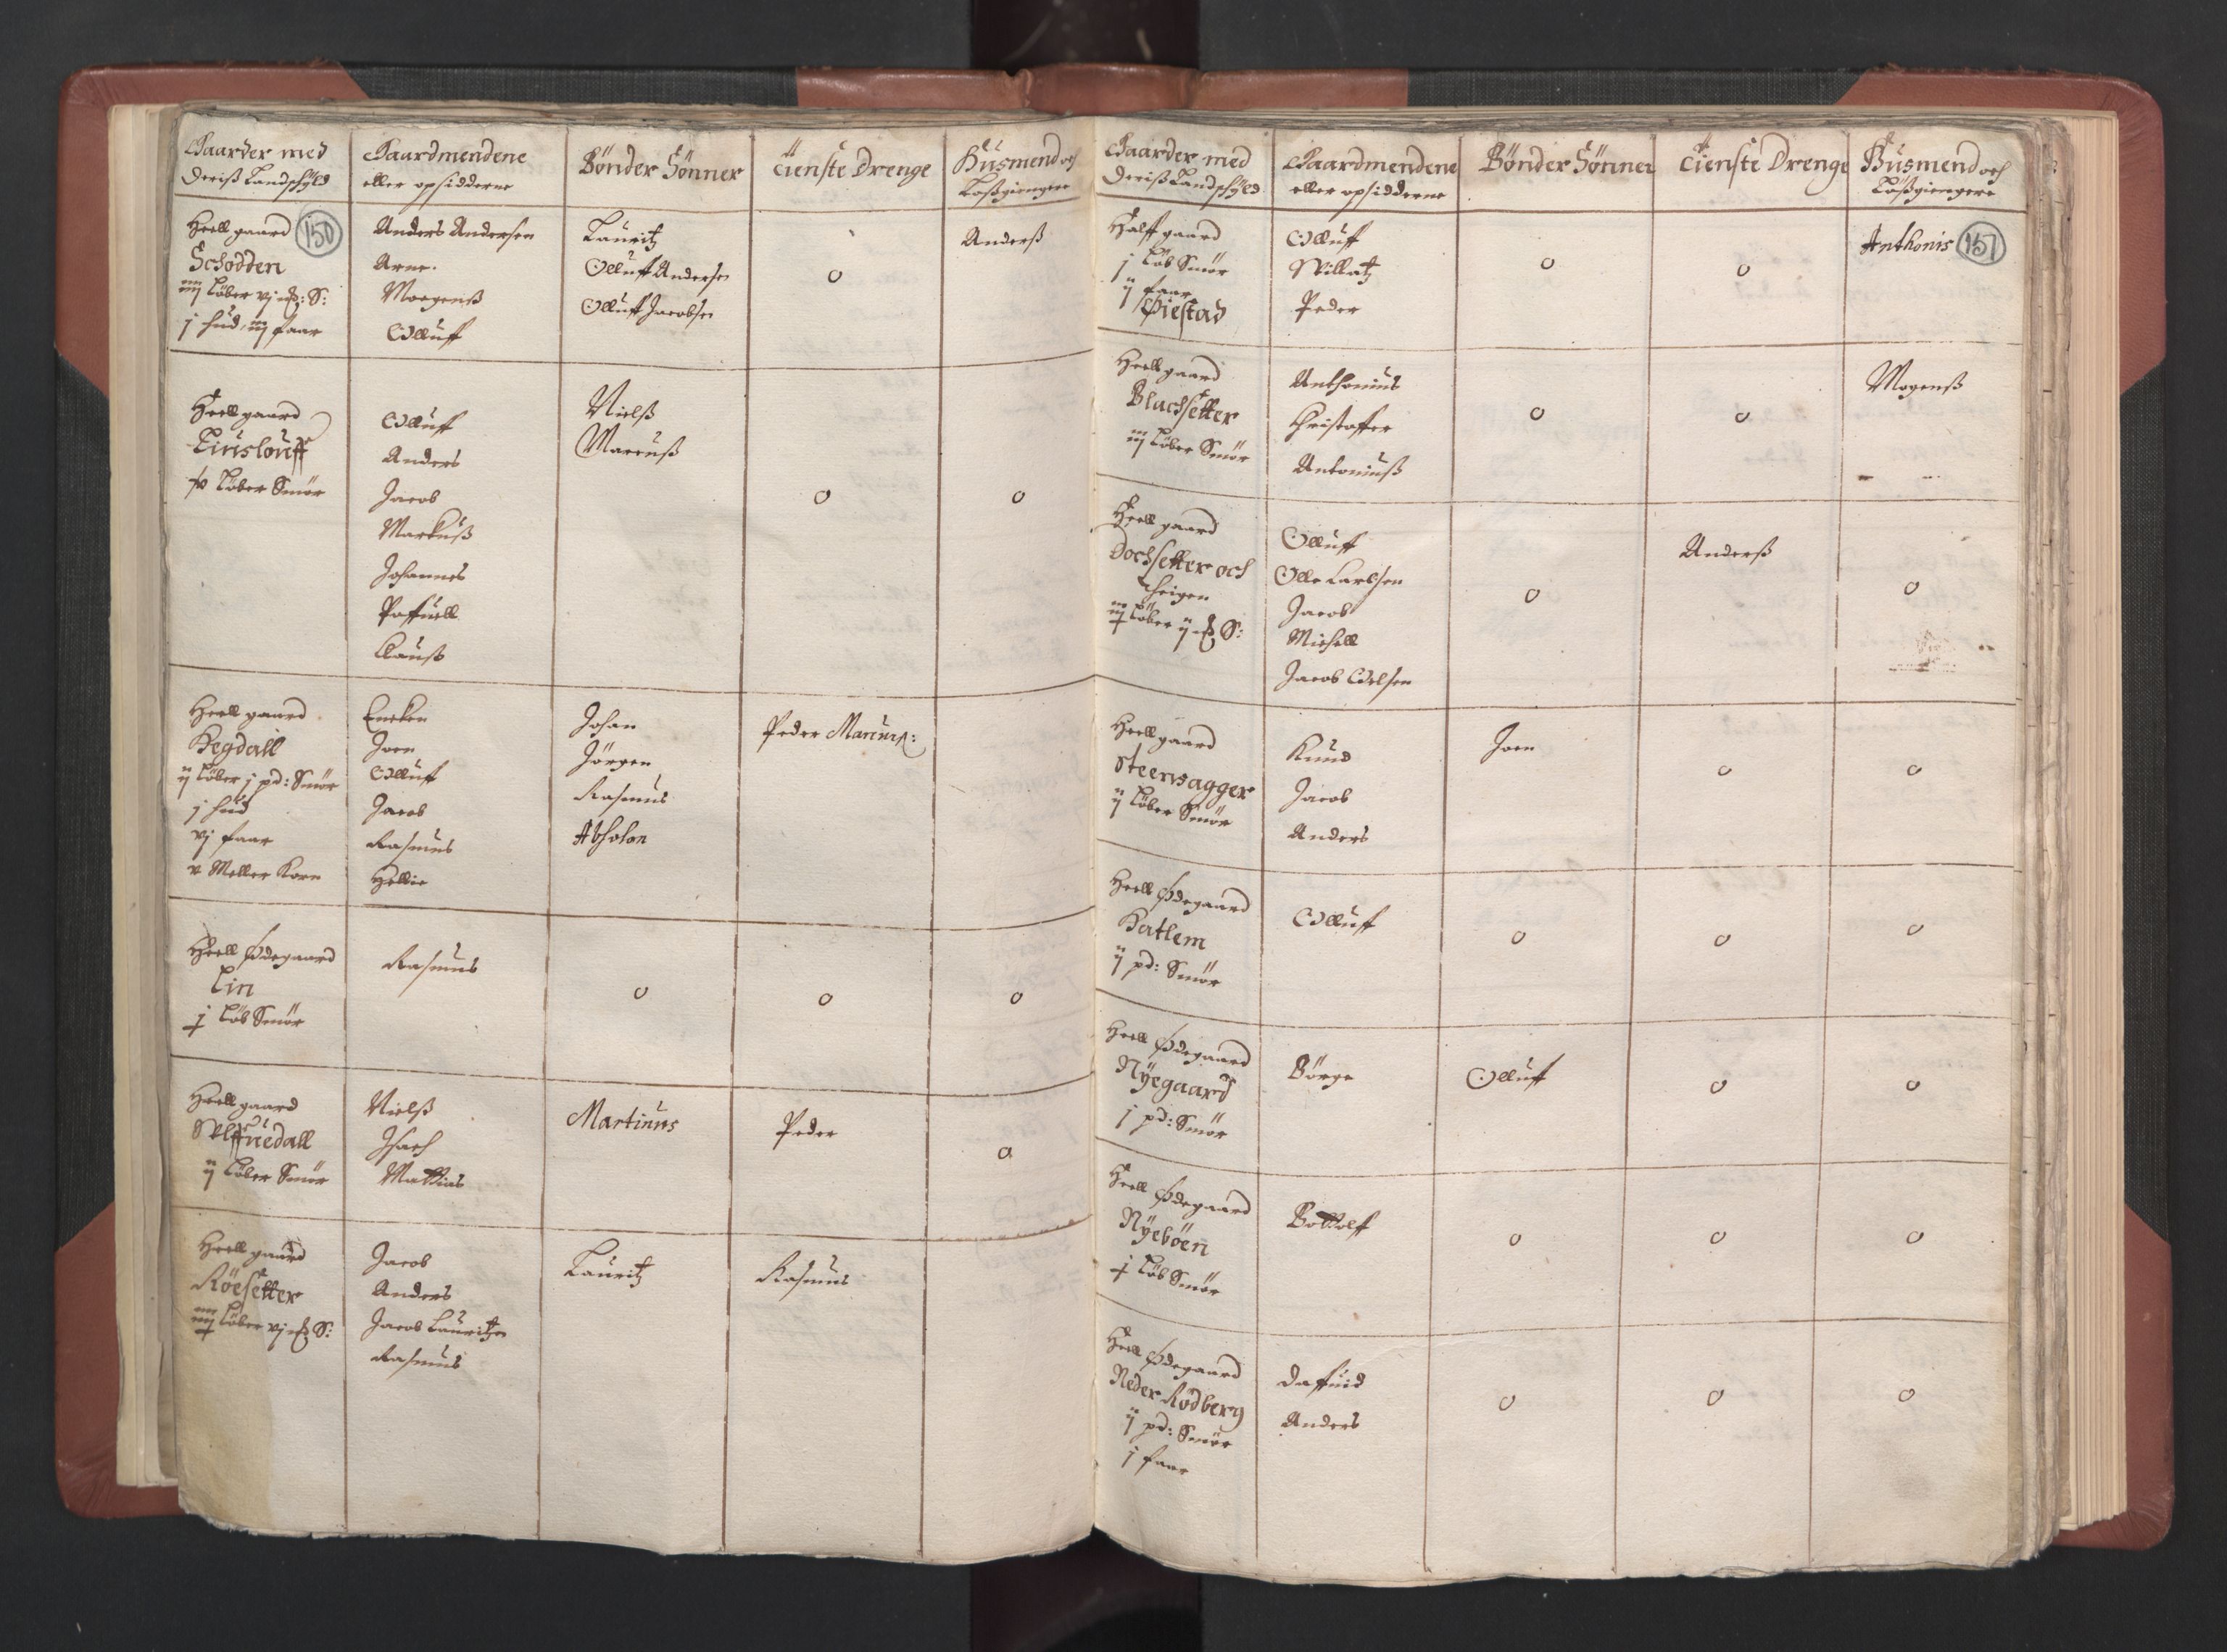 Gaarder med
Deriß Landschÿld
Gaardmendene
eller opsidderne
Bönder Sönner
Tienste Drenge
Husmend och
Lößgiengere
Heell gaard
150
Schodden
iiij Löber vj mrk: S:
j hud, iij faar
Anders Andersen
Arne.
Mogenß
Olluff
Lauritz
Olluff Andersen
Olluff Jacobsen
o
Anderß
Heell gaard
Linslouff
v Löber Smör
Olluff
Anders
Jacob
Markuß
Johannes
Paffuell
Clauß
Nielß
Marcuß
o
o
Heell gaard
Hegdall
ij Löber j pd: Smör
j hud
vj faar
v Meller Korn
Encken
Joen
Olluff
Jacob
Rasmus
Hellie
Johan
Jörgen
Rasmus
Absolon
Peder Marcuß:
Heell Ødegaard
Lin
j Löb Smör
Rasmus
o
o
o
Heell gaard
Sylffuedall
ij Löber Smör
Nielß
Isach
Mattias
Martinus
Peder
o
Heell gaard
Röesetter
iiij Löber vj mrk S:
Jacob
Anders
Jacob Lauritzen
Rasmus
Lauritz
Rasmus
Gaarder med
Deriß Landschÿld
Gaardmendene
eller opsidderne
Bönder Sönner
Tienste Drenge
Husmend och
Lößgiengere
Halff gaard
j Löb Smör
ij faar
Øiestad
Olluff
Villatz
Peder
o
o
Anthonis
151
Heell gaard
Blachsetter
iij Löber Smör
Anthonius
Christoffer
Antoniuß
o
o
Mogenß
Heell gaard
Dochsetter och
Theigen
iij Löber ij mrk S:
Olluff
Olle Karlsen
Jacob
Michell
Jacob Oelsen
o
Anderß
o
Heell gaard
Steensagger
ij Löber Smör
Knud
Jacob
Anders
Joen
o
o
Heell Ødegaard
Hatlem
ij pd: Smör
Olluff
o
o
o
Heell Ødegaard
Nÿegaard
j pd: Smör
Börge
Olluff
o
o
Heell Ødegaard
Nÿeböen
j Löb Smör
Bottolff
o
o
o
Heell Ødegaard
Neder Rödberg
ij pd: Smör
j faar
Daffuid
Anders
o
o
o